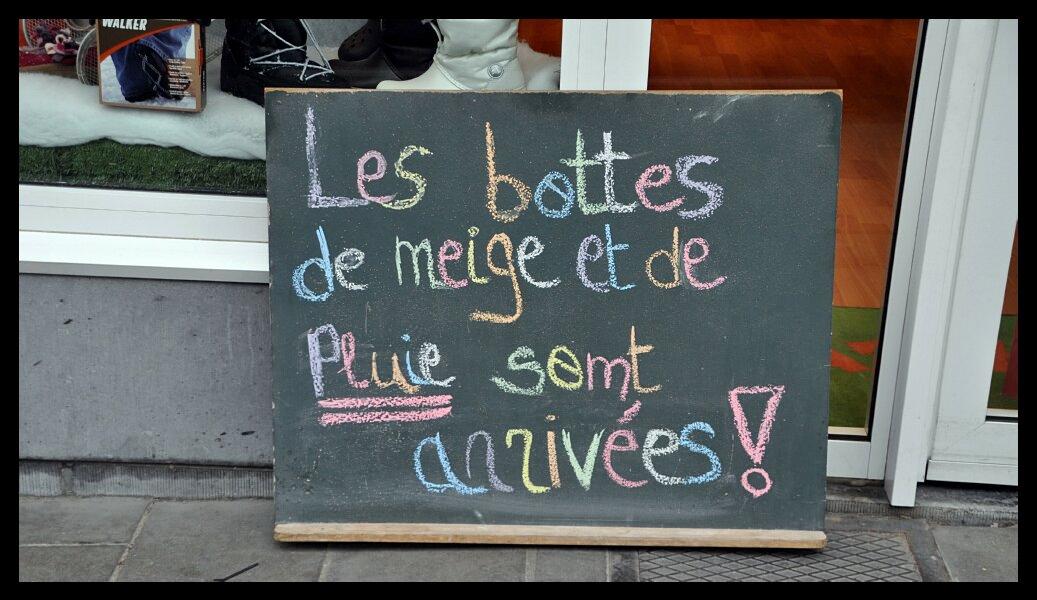 WALKER
Les bottes
de meige et de
Pluie somt
arrivées!